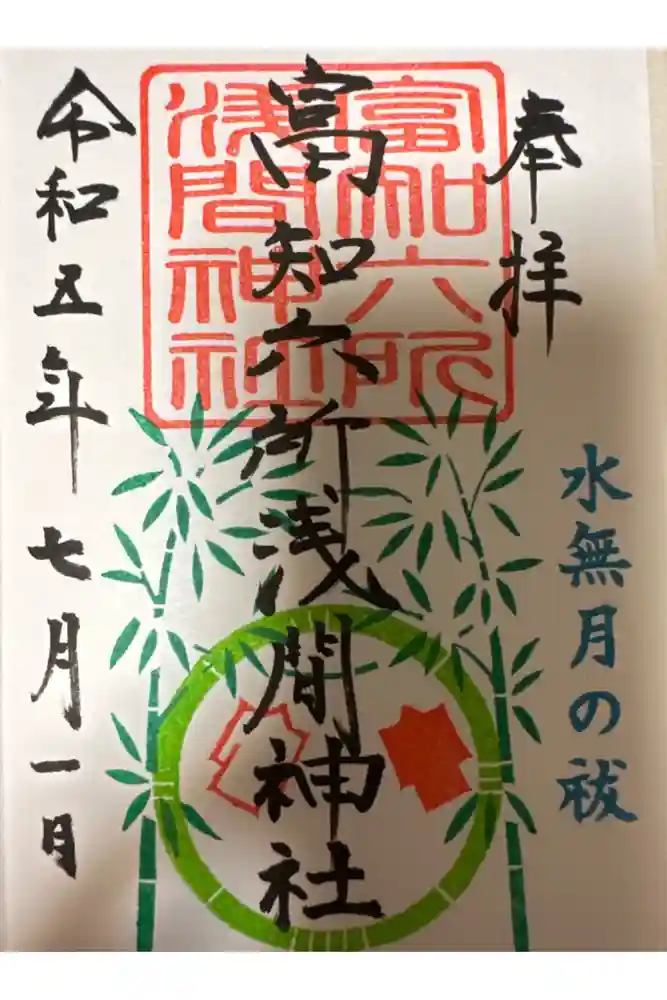 奉拝
水無月の祓
富知六所
浅間神社
富知六所浅間神社
令和五年七月一日